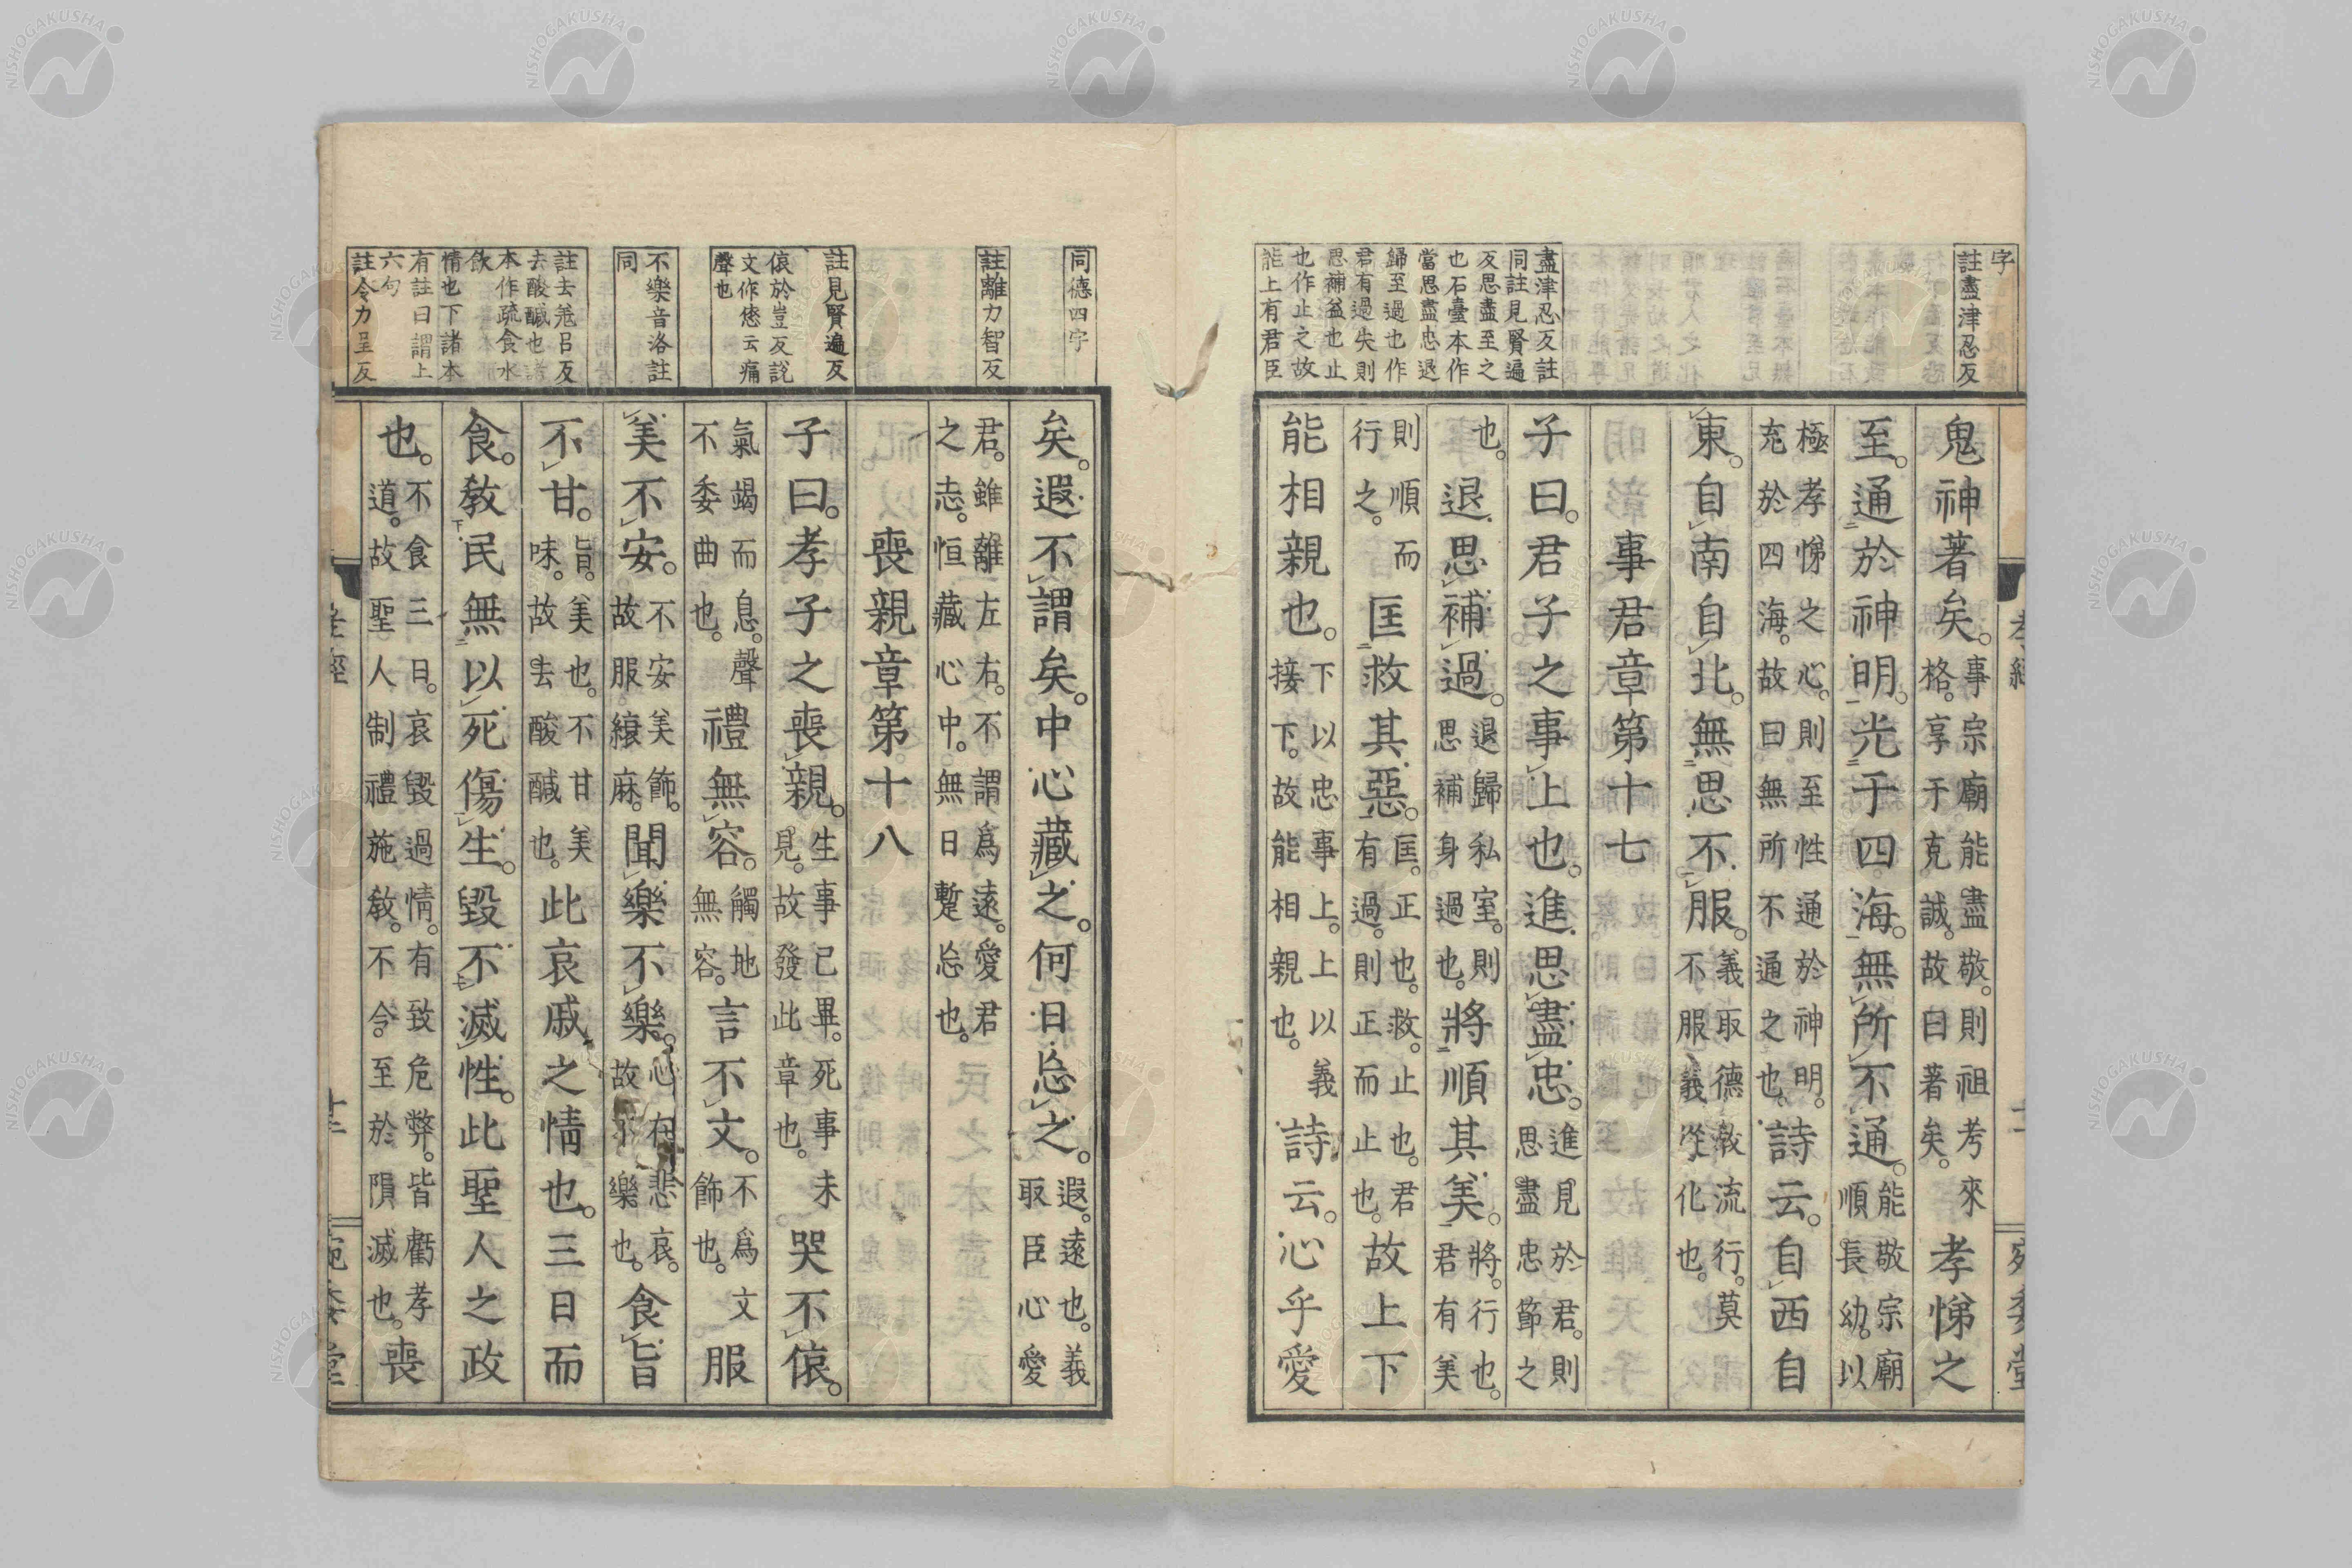 字
註盡津忍反
盡津忍反註
同註見賢遍
反思盡至之
也石臺本作
當思盡忠退
歸至過也作
君有過失則
思補益也止
也作止之故
能上有君臣
鬼神著矣。事宗廟能盡敬。則祖考來格。享于克誠。故曰著矣。孝悌之
至。通於神明。光于四海。無所不通。能敬宗廟順長幼。以
極孝悌之心。則至性通於神明。充於四海。故曰無所不通之也。詩云。自西自
東。自南自北。無思不服。義取德教流行。莫不服義從化也。
事君章第十七
子曰。君子之事上也。進思盡忠。進見於君。則思盡忠節之
也。退思補過。退歸私室。則思補身過也。將順其美。將。行也。君有美
則順而行之。匡救其惡。匡。正也。救。止也。君有過。則正而止也。故上下
能相親也。下以忠事上。上以義接下。故能相親也。詩云。心乎愛
同德四字
註離力智反
註見賢遍反
㑋於豈反說
文作㥋云痛
聲也
不樂音洛註
同
註去羗呂反
去酸醎也諸
本作疏食水
飲
情也下諸本
有註曰謂上
六句
註令力呈反
矣。遐不謂矣。中心藏之。何日忘之。遐。遠也。義取臣心愛
君。雖離左右。不謂爲遠。愛君之志。恒藏心中。無日蹔忘也。
喪親章第十八
子曰。孝子之喪親。生事已畢。死事未見。故發此章也。哭不㑋。
氣竭而息。聲不委曲也。禮無容。觸地無容。言不文。不爲文飾也。服
美不安。不安美飾。故服縗麻。聞樂不樂。心在悲哀。故不樂也。食旨
不甘。旨。美也。不甘美味。故去酸醎也。此哀戚之情也。三日而
食。教民無以死傷生。毀不滅性。此聖人之政
也。不食三日。哀毀過情。有致危弊。皆虧孝道。故聖人制禮施教。不令。至於隕滅也。喪